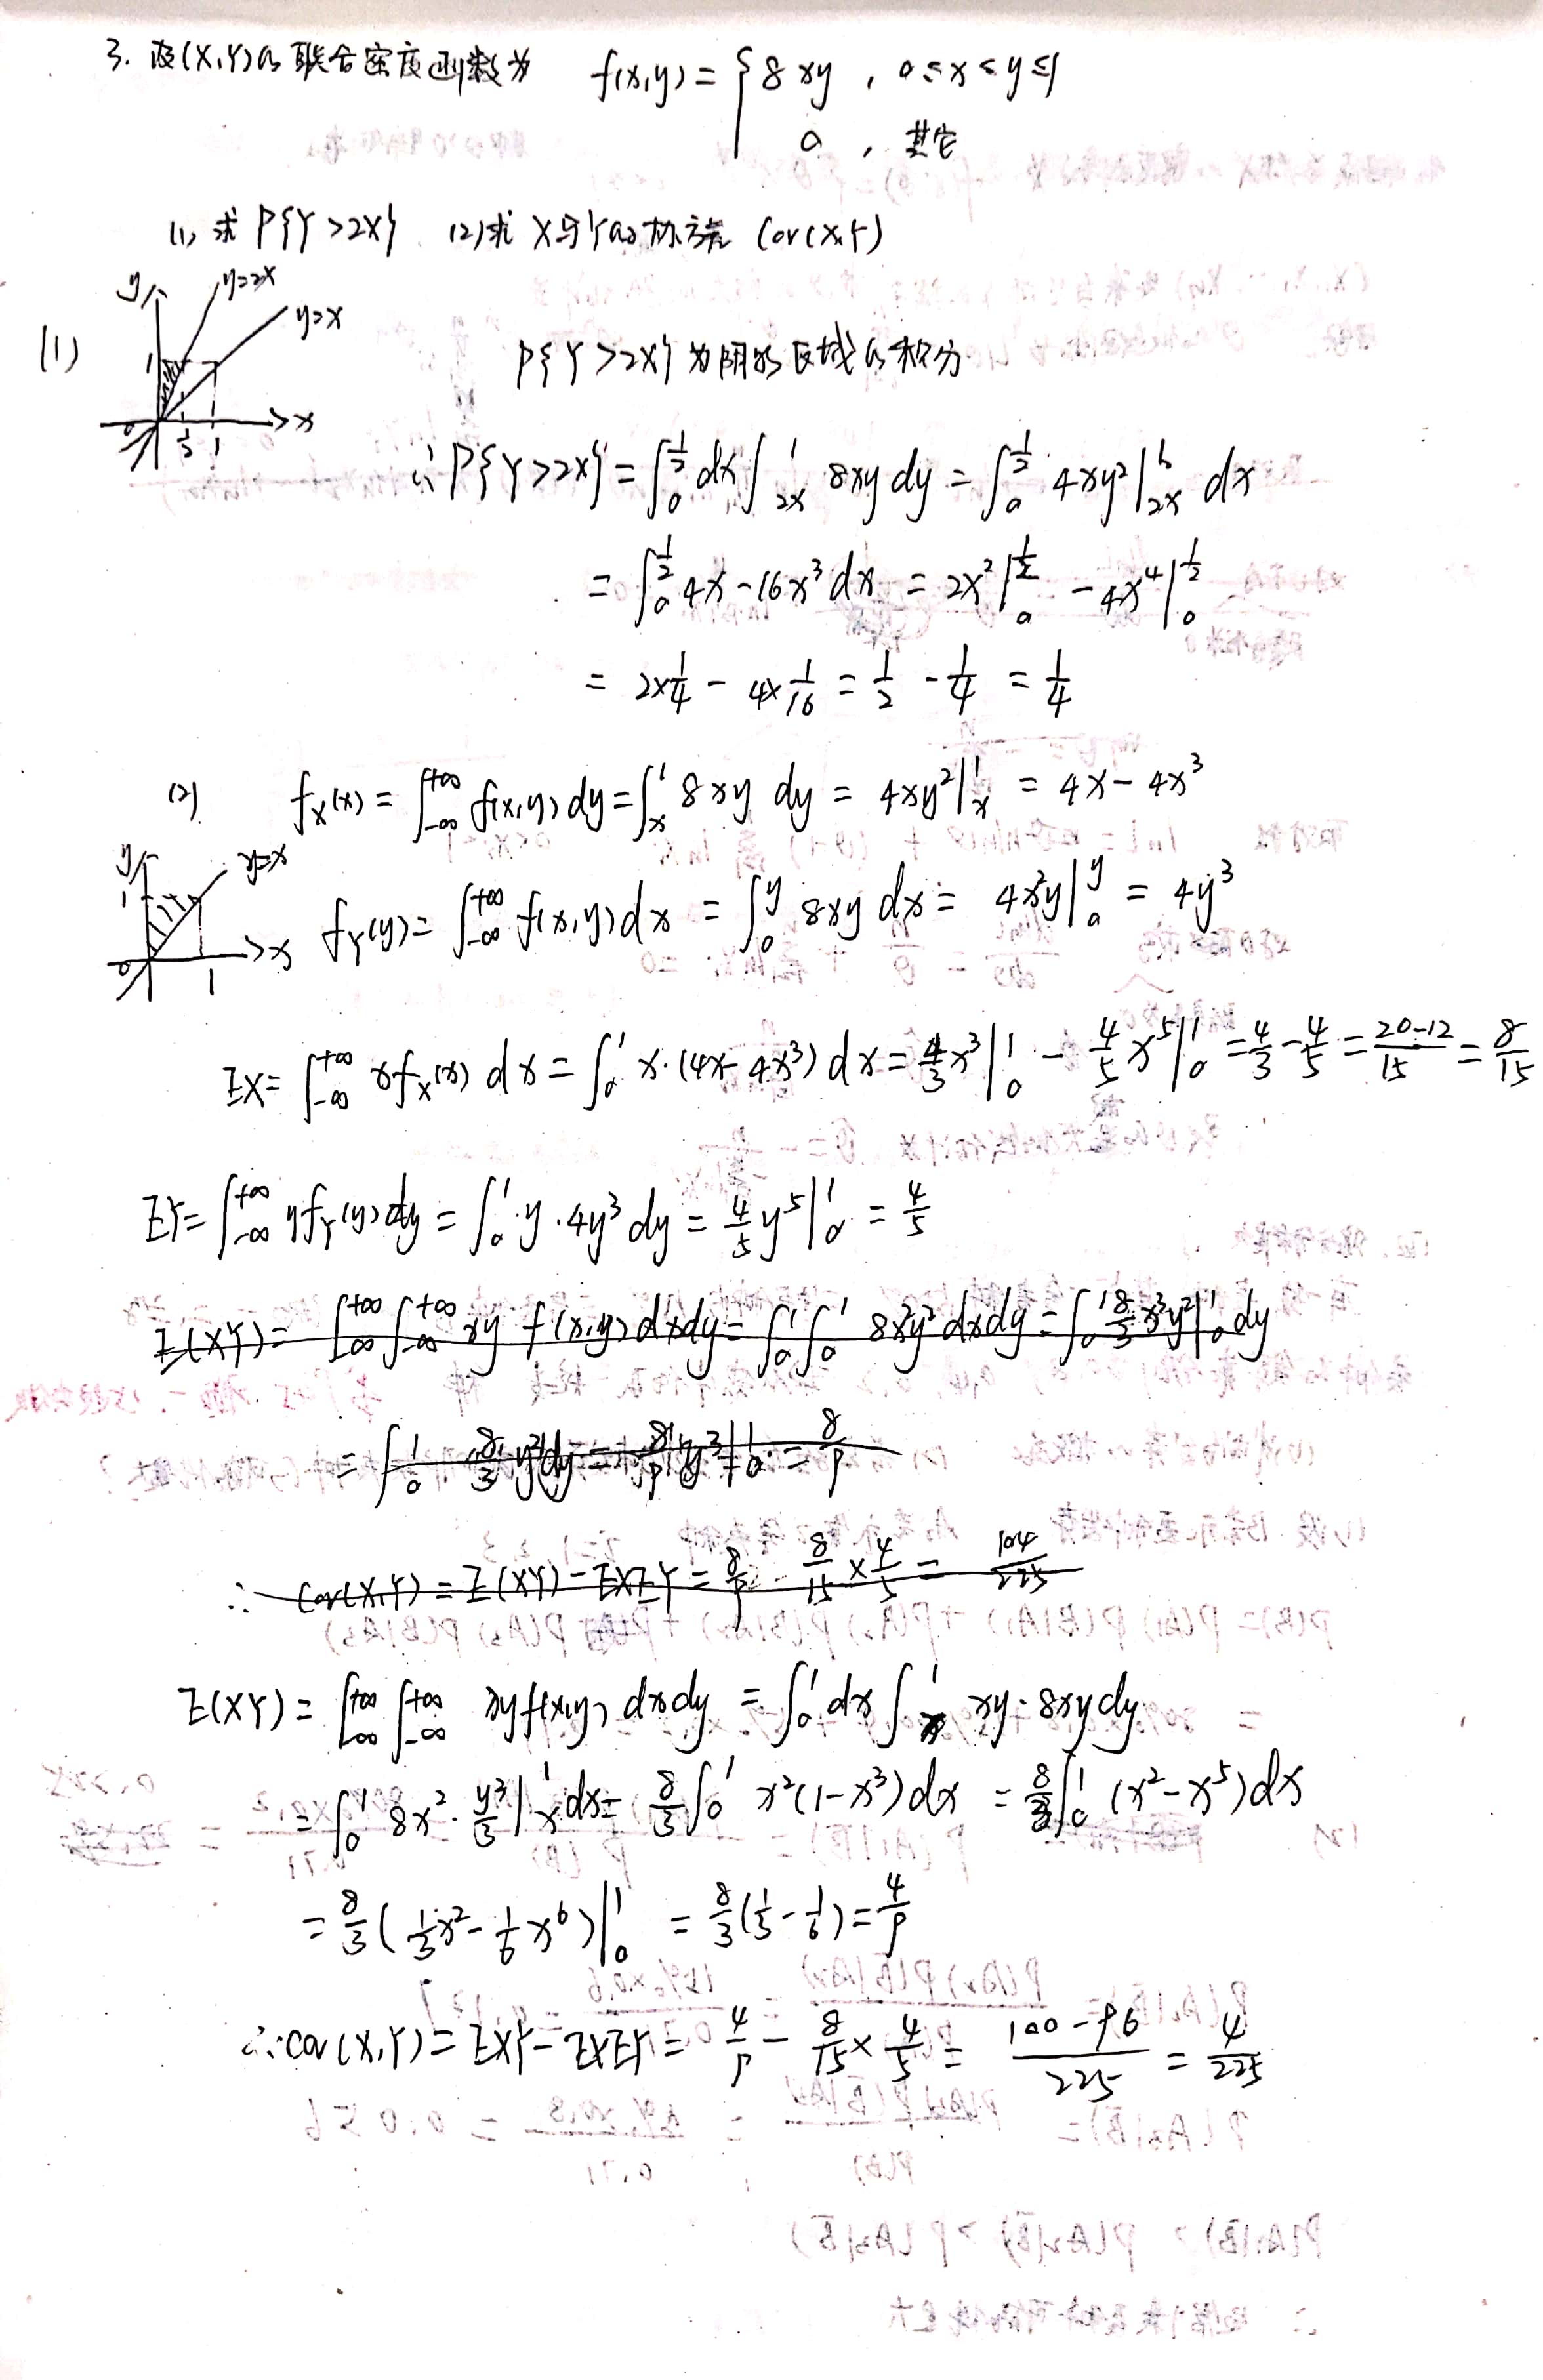 3. 设(X,Y)的联合密度函数为 f(x,y) = { 8xy , 0≤x≤y≤1
0 , 其它
(1) 求 P{Y>2X} (2)求 X与Y的协方差 Cov(X,Y)
y y=2x
y=x
(1) 1 P{Y>2X}为阴影区域的积分
0 1/2 1 >x
∴ P{Y>2X} = ∫_0^{1/2} dx ∫_{2x}^1 8xy dy = ∫_0^{1/2} 4xy²|_{2x}^1 dx
= ∫_0^{1/2} 4x-16x³ dx = 2x²|_0^{1/2} - 4x⁴|_0^{1/2}
= 2×1/4 - 4×1/16 = 1/2 - 1/4 = 1/4
(2) f_X(x) = ∫_{-∞}^{+∞} f(x,y) dy = ∫_x^1 8xy dy = 4xy²|_x^1 = 4x - 4x³
y y=x
1 f_Y(y) = ∫_{-∞}^{+∞} f(x,y) dx = ∫_0^y 8xy dx = 4x²y|_0^y = 4y³
0 1 >x
EX = ∫_{-∞}^{+∞} x f_X(x) dx = ∫_0^1 x·(4x-4x³) dx = 4/3 x³|_0^1 - 4/5 x⁵|_0^1 = 4/3 - 4/5 = (20-12)/15 = 8/15
EY = ∫_{-∞}^{+∞} y f_Y(y) dy = ∫_0^1 y·4y³ dy = 4/5 y⁵|_0^1 = 4/5
E(XY) = ∫_{-∞}^{+∞} ∫_{-∞}^{+∞} xy f(x,y) dxdy = ∫_0^1 ∫_0^1 8x²y² dxdy = ∫_0^1 8/3 x³y²|_0^1 dy
= ∫_0^1 8/3 y² dy = 8/9 y³|_0^1 = 8/9
∴ Cov(X,Y) = E(XY) - EXEY = 8/9 - 8/15 × 4/5 = 104/225
E(XY) = ∫_{-∞}^{+∞} ∫_{-∞}^{+∞} xy f(x,y) dxdy = ∫_0^1 dx ∫_x^1 xy·8xy dy
= ∫_0^1 8x²·y³/3|_x^1 dx = 8/3 ∫_0^1 x²(1-x³) dx = 8/3 ∫_0^1 (x²-x⁵) dx
= 8/3 (1/3 x² - 1/6 x⁶)|_0^1 = 8/3 (1/3 - 1/6) = 4/9
∴ cov(X,Y) = EXY - EXEY = 4/9 - 8/15 × 4/5 = (100-96)/225 = 4/225